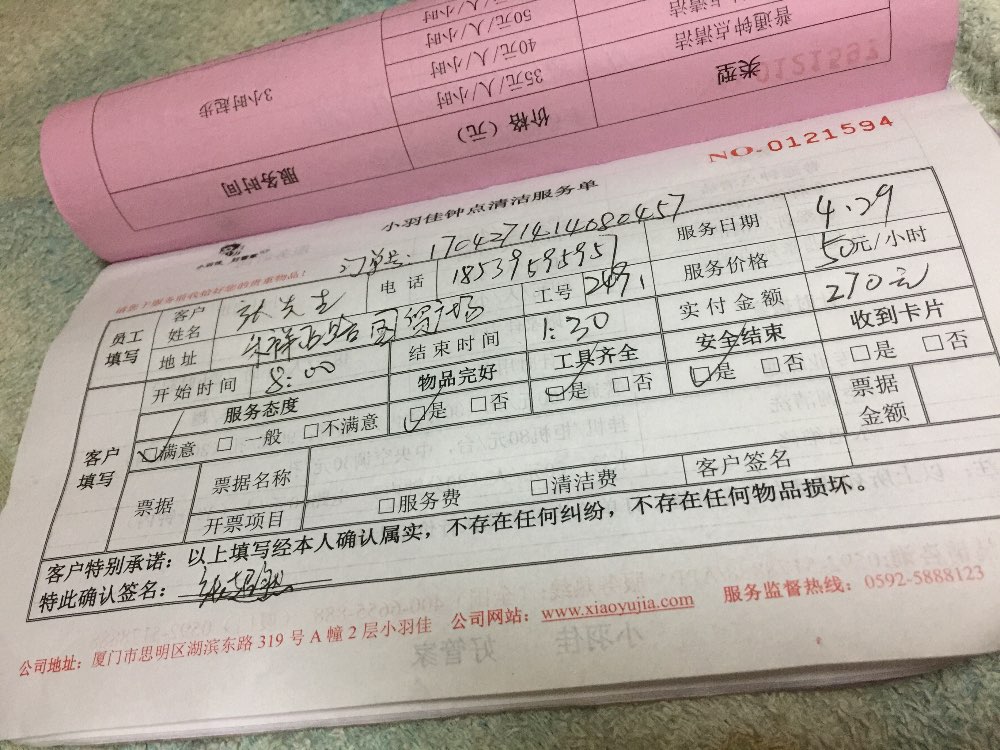 50元/人/小时
普通钟点清洁
40元/人/小时
普通钟点清洁
3小时起步
35元/人/小时
类型
价格（元）
服务时间
NO.0121594
小羽佳钟点清洁服务单
订单号：17042714114080457
员工填写
客户姓名
张先生
电话
18539595957
服务日期
4.29
地址
国贸广场
工号
2491
服务价格
50元/小时
开始时间
8:00
结束时间
1:30
实付金额
270元
客户填写
服务态度
物品完好
工具齐全
安全结束
收到卡片
☑满意 □一般 □不满意
☑是 □否
☑是 □否
☑是 □否
□是 □否
票据
票据名称
票据金额
开票项目
□服务费 □清洁费
客户签名
客户特别承诺：以上填写经本人确认属实，不存在任何纠纷，不存在任何物品损坏。
特此确认签名：
公司地址：厦门市思明区湖滨东路319号A幢2层小羽佳 公司网站：www.xiaoyujia.com 服务监督热线：0592-5888123